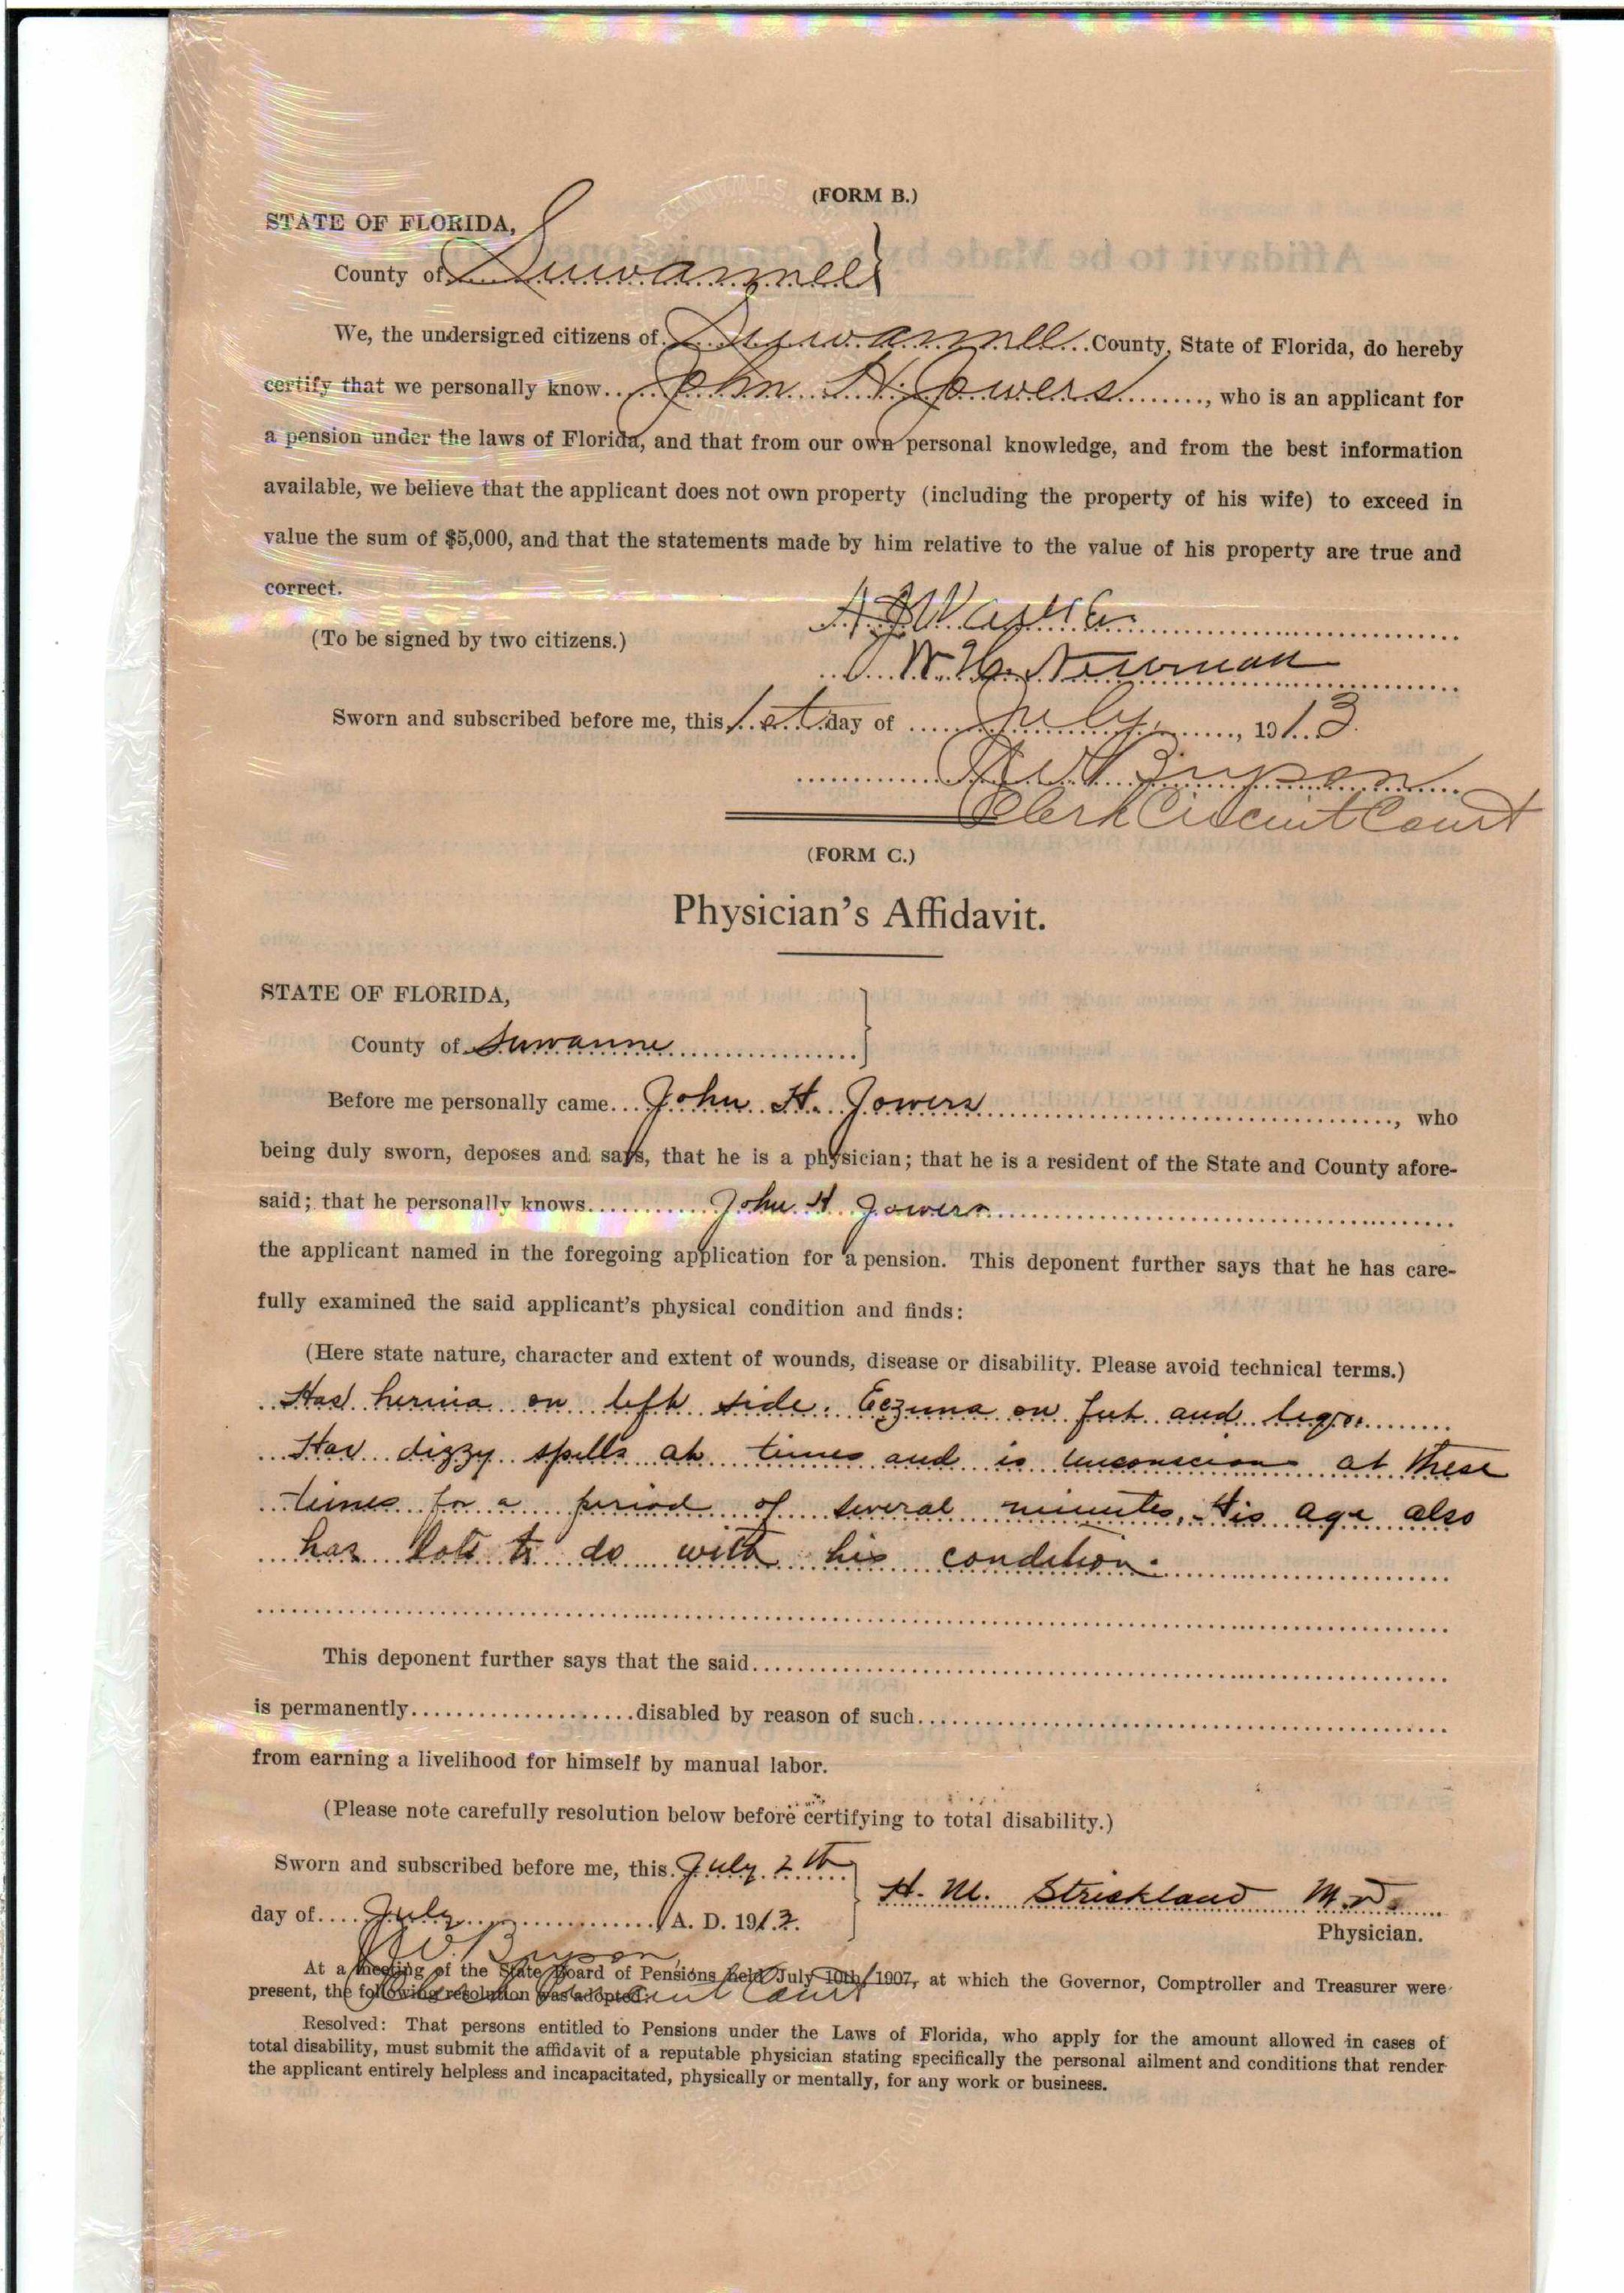 (FORM B.)
STATE OF FLORIDA,
County of Suwannee
We, the undersigned citizens of Suwannee County, State of Florida, do hereby
certify that we personally know John H. Jowers, who is an applicant for
a pension under the laws of Florida, and that from our own personal knowledge, and from the best information
available, we believe that the applicant does not own property (including the property of his wife) to exceed in
value the sum of $5,000, and that the statements made by him relative to the value of his property are true and
correct.
(To be signed by two citizens.)
W. H. Newman
Sworn and subscribed before me, this 1st day of July, 1913
Bryson
Clerk Circuit Court
(FORM C.)
Physician's Affidavit.
STATE OF FLORIDA,
County of Suwanne
Before me personally came John H. Jowers, who
being duly sworn, deposes and says, that he is a physician; that he is a resident of the State and County afore-
said; that he personally knows John H Jowers
the applicant named in the foregoing application for a pension. This deponent further says that he has care-
fully examined the said applicant's physical condition and finds:
(Here state nature, character and extent of wounds, disease or disability. Please avoid technical terms.)
Has hernia on left side. Eczema on feet and legs.
Has dizzy spells at times and is unconscious at these
times for a period of several minutes. His age also
has lots to do with his condition.
This deponent further says that the said
is permanently disabled by reason of such
from earning a livelihood for himself by manual labor.
(Please note carefully resolution below before certifying to total disability.)
Sworn and subscribed before me, this July 2th
day of July A. D. 1913.
H. M. Strickland M.D.
Physician.
Bryson,
Clerk Circuit Court
At a meeting of the State Board of Pensions held July 10th, 1907, at which the Governor, Comptroller and Treasurer were
present, the following resolution was adopted:
Resolved: That persons entitled to Pensions under the Laws of Florida, who apply for the amount allowed in cases of
total disability, must submit the affidavit of a reputable physician stating specifically the personal ailment and conditions that render
the applicant entirely helpless and incapacitated, physically or mentally, for any work or business.